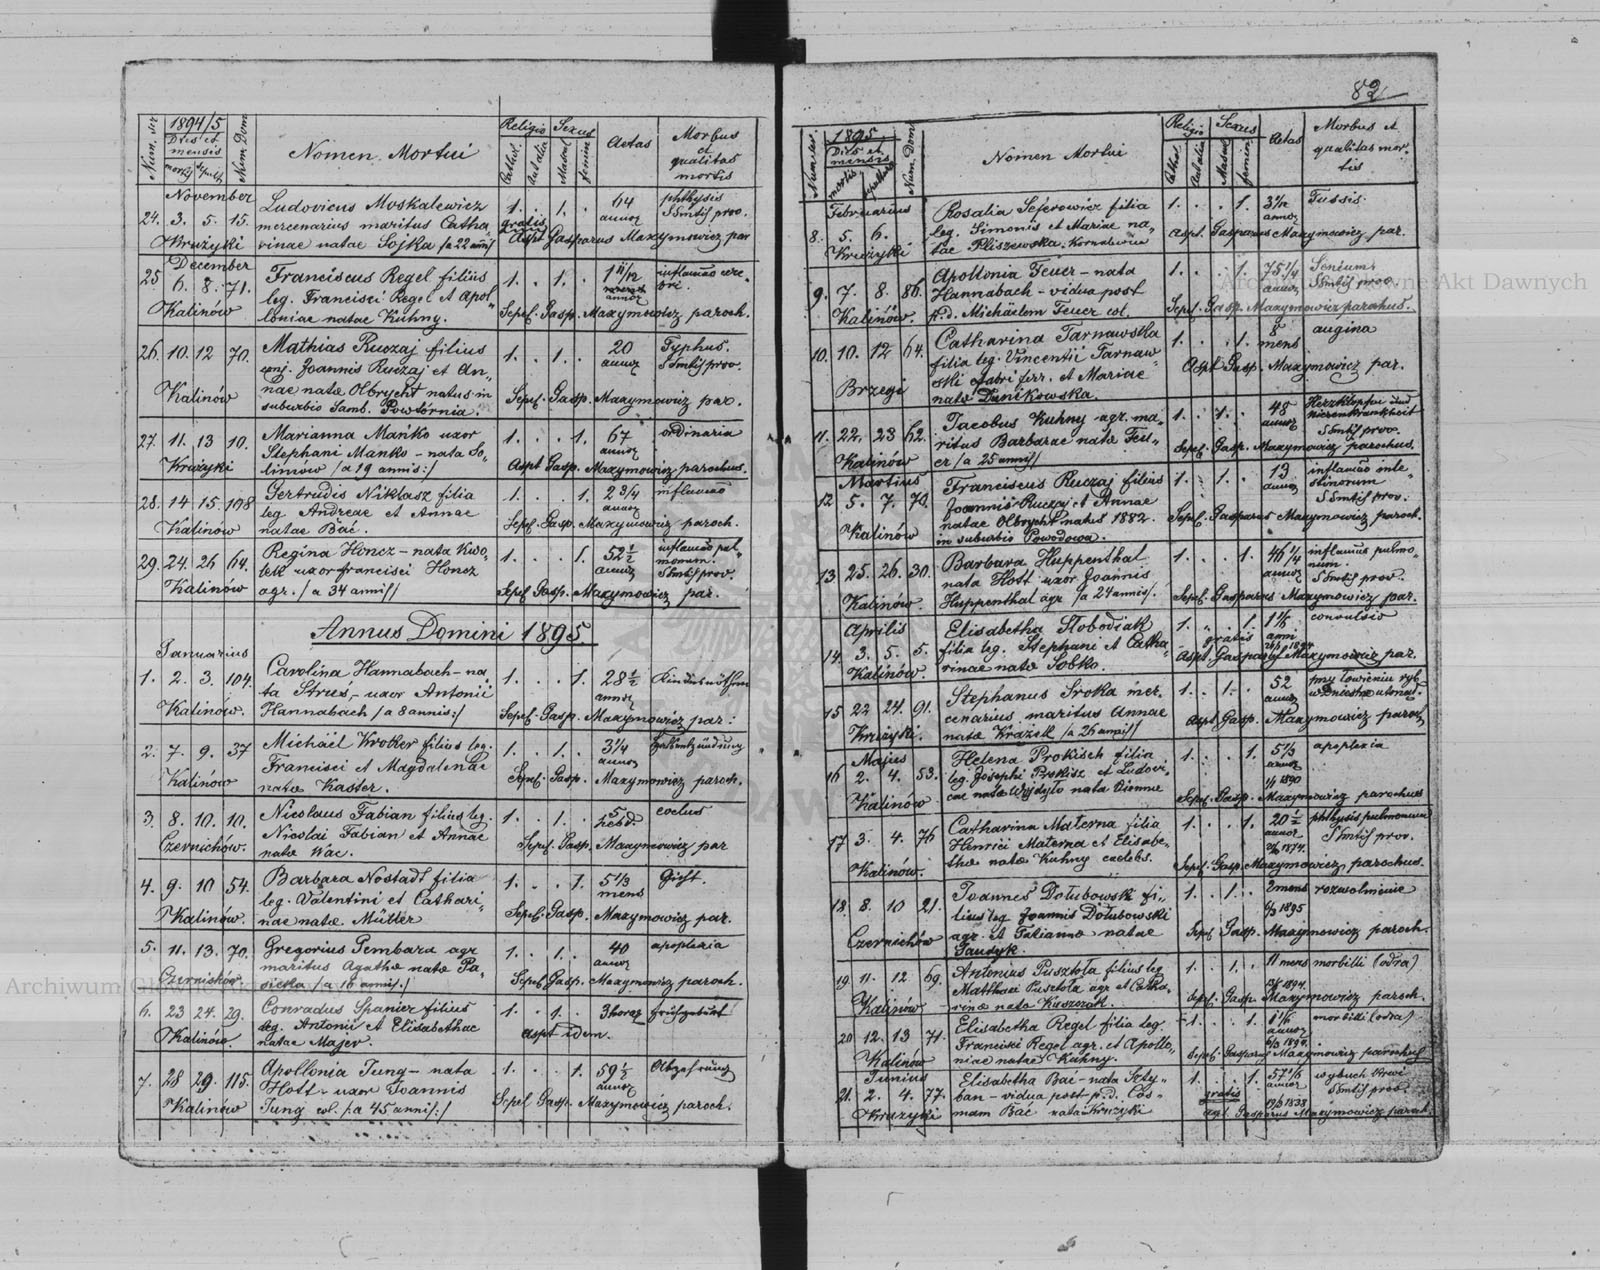 Num. ser.
1894/5
Dies et
mensis
mortis sepult.
Num. Dom.
Nomen Mortui
Religio
Cathol.
Aut alia
Sexus
Mascul
femin
Aetas
Morbus
et
qualitas
mortis
November
24. 3. 5. 15.
Kružyki
Ludovicus Moskalewicz
mercenarius maritus Catha,
rinae natae Sojka /a 22 annis/
1. . 1. .
64
annor
phthysis
SSmtis prov.
gratis
Aspt Gasparus Maxymowicz par
December
25 6. 8. 71.
Kalinów
Franciscus Regel filius
leg. Francisci Regel et Apol„
loniae natae Kuhny.
1. . 1. .
1 11/12
annor
inflam̄ao cere„
bri.
Sepel. Gasp. Maxymowicz paroch.
26. 10. 12 70.
Kalinów
Mathias Ruczaj filius
conj. Joannis Ruczaj et An„
nae natae Olbrycht natus in
suburbio Samb. Powtórnia.
1. . 1. .
20
annor
Typhus.
SSmtis prov.
Sepel. Gasp. Maxymowicz par.
27. 11. 13 10.
Kružyki
Marianna Mańko uxor
Stephani Mańko – nata So„
linców /a 29 annis:/
1. . . 1.
67
annor
ordinaria
Aspt Gasp. Maxymowicz parochus.
28. 14 15. 108
Kalinów
Gertrudis Niklasz filia
leg. Andreae et Annae
natae Bać.
1. . . 1.
2 3/4
annor
inflam̄ao
Sepel. Gasp. Maxymowicz paroch.
29. 24. 26 64.
Kalinów
Regina Honcz – nata Kwo„
lek uxor francisci Honcz
agr. /a 34 annis//
1. . . 1.
52 1/2
annor
inflam̄ao pul„
monum.
SSmtis prov.
Sepel. Gasp. Maxymowicz par.
Annus Domini 1895.
Januarius
1. 2. 3. 104.
Kalinów.
Carolina Hannabach – na„
ta Struś, – uxor Antonii
Hannabach /a 8 annis:/
1. . . 1.
28 1/2
annor
Kindesnöthen
Sepel. Gasp. Maxymowicz par:
2. 7. 9. 37
Kalinów
Michäel Kroker filius leg.
Francisci et Magdalenae
natae Kaster.
1. . 1. .
3 1/4
annor
Sepel. Gasp. Maxymowicz paroch.
3. 8. 10. 10.
Czernichów.
Nicolaus Fabian filius leg.
Nicolai Fabian et Annae
natae Wac.
1. . 1. .
5
hebd.
Sepel. Gasp. Maxymowicz par
4. 9. 10 54.
Kalinów.
Barbara Nostadt filia
leg. Valentini et Cathari„
nae natae Müller
1. . . 1.
5 1/3
mens
Gicht.
Sepel. Gasp. Maxymowicz par.
5. 11. 13. 70.
Czernichów
Gregorius Pembara agr
maritus Agathae natae Pa„
siecka /a 16 annis./
1. . 1. .
40
annor
apoplexia
Sepel. Gasp. Maxymowicz paroch.
6. 23 24. 29.
Kalinów.
Conradus Spanier filius
leg. Antonii et Elisabethae
natae Majer.
1. . 1. .
3 horas
frühgeburt
Aspt idem.
7. 28 29. 115.
Kalinów
Apollonia Jung – nata
Hott – uxor Joannis
Jung col. /:a 45 annis:/
1. . . 1.
59 1/2
annor
Abzehrung
Sepel Gasp. Maxymowicz paroch.
82
Num. ser.
1895.
Dies et
mensis
mortis sepulturae
Num. Dom.
Nomen Mortui
Religio
Cathol
Aut alia
Sexus
Mascul
femin
Aetas
Morbus et
qualitas mor„
tis
Februarius
8. 5. 6.
Kružyki
Rosalia Seferowicz filia
leg. Simonis et Mariae na„
tae Pliszewska.
1. . . 1.
annor
Tussis
Aspt. Gasparus Maxymowicz par.
9. 7. 8. 86.
Kalinów.
Apollonia Feuer – nata
Hannabach – vidua post
p.d. Michäelem Feuer col.
1. . . 1.
75 1/4
annor
Senium
SSmtis prov.
Sepel. Gasp. Maxymowicz parochus.
10. 10. 12 64.
Brzegi
Catharina Tarnawska
filia leg. Vincentii Tarnaw„
ski fabri ferr. et Mariae
natae Dunikowska.
1. . . 1.
8
mens
angina
Aspt Gasp. Maxymowicz par.
11. 22. 23 62.
Kalinów
Jacobus Kuhny agr. ma„
ritus Barbarae natae Feu„
er /a 25 annis//
1. . 1. .
48
annor
Herzklopfen und
Nierenkrankheit
SSmtis prov.
Sepel. Gasp. Maxymowicz parochus.
Martius
12 5. 7. 70.
Kalinów
Franciscus Ruczaj filius
Joannis Ruczaj et Annae
natae Olbrycht natus 1882.
in suburbio Powodowa.
1. . 1. .
13
annor
inflam̄ao inte„
stinorum
SSmtis prov.
Sepel. Gasparus Maxymowicz paroch.
13. 25. 26. 30.
Kalinów.
Barbara Huppenthal
nata Hott uxor Joannis
Huppenthal agr /a 24 annis/.
1. . . 1.
46 1/4
annor
inflam̄aō pulmo„
num.
SSmtis prov.
Sepel. Gasparus Maxymowicz par.
Aprilis
14. 3. 5. 5.
Kalinów.
Elisabetha Słobodiak
filia leg. Stephani et Catha„
rinae natae Sobko.
1. . . 1.
1 1/6
anni
convulsio
gratis
Aspt Gasparus Maxymowicz par.
15 22 24. 91.
Kružyki.
Stephanus Sroka mer„
cenarius maritus Annae
natae Krażek /a 26 annis//
1. . 1. .
52
annor
przy łowieniu ryb
w Dniestrze utonął.
Aspt Gasp. Maxymowicz paroch
Majus
16 2. 4. 53.
Kalinów
Helena Prokisch filia
leg. Josephi Prokisz et Ludovi„
cae natae Wojdyło nata Bionne
1. . . 1.
5 1/3
annor
1890
apoplexia
Sepel. Gasp. Maxymowicz parochus
17 3. 4. 76
Kalinów.
Catharina Materna filia
Henrici Materna et Elisabe„
thae natae Kuhny caelebs.
1. . . 1.
20 1/2
annor
1874.
phthysis pulmonum
SSmtis prov.
Sepel. Gasp. Maxymowicz parochus.
18. 8. 10 21.
Czernichów
Joannes Dołubowski fi„
lius leg Joannis Dołubowski
agr. et Tatianae natae
Gaudyk.
1. . 1. .
2 mens
6/3 1895
rozwolnienie
Sepel. Gasp. Maxymowicz paroch.
19. 11. 12 69.
Kalinów
Antonius Pusztoła filius leg
Matthaei Pusztoła agr et Catha„
rinae nata Kuszczak.
1. . 1. .
11 mens
1894.
morbilli (odra)
Sepel. Gasp. Maxymowicz paroch.
20 12. 13 71.
Kalinów
Elisabetha Regel filia leg.
Francisci Regel agr. et Apollo„
niae natae Kuhny.
1. . . 1.
1 1/6
annor
6/3 1894.
morbilli (odra)
Sepel. Gasparus Maxymowicz parochus
Junius
21. 2. 4. 77.
Kružyki
Elisabetha Bać – nata Szty„
ban – vidua post p.d. Cos„
mam Bać nata Kružyki
1. . . 1.
57 1/6
annor
1838
wybuch krwi
SSmtis prov
gratis
Asp. Gasparus Maxymowicz paroch.
Archiwum Główne Akt Dawnych